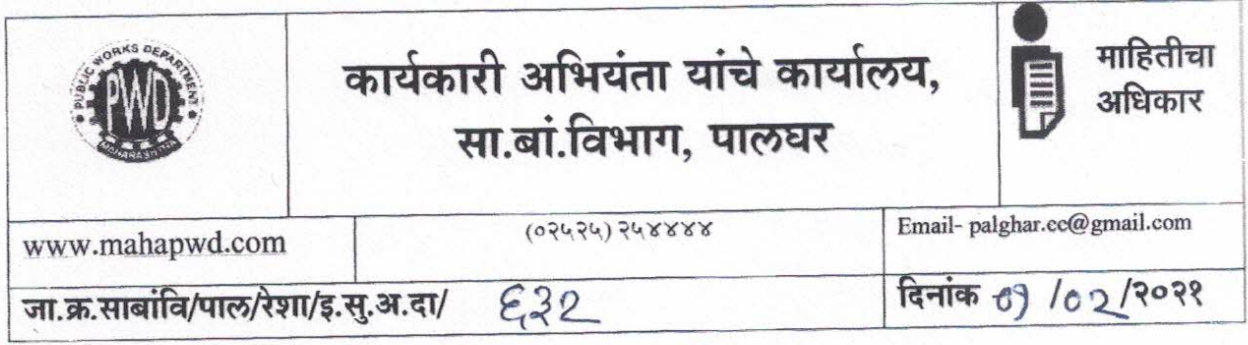 PUBLIC WORKS DEPARTMENT
PWD
MAHARASHTRA
कार्यकारी अभियंता यांचे कार्यालय,
सा.बां.विभाग, पालघर
माहितीचा
अधिकार
www.mahapwd.com
(०२५२५) २५४४४४
Email- palghar.ee@gmail.com
जा.क्र.साबांवि/पाल/रेशा/इ.सु.अ.दा/ ६३२
दिनांक ०१ /०२/२०२१